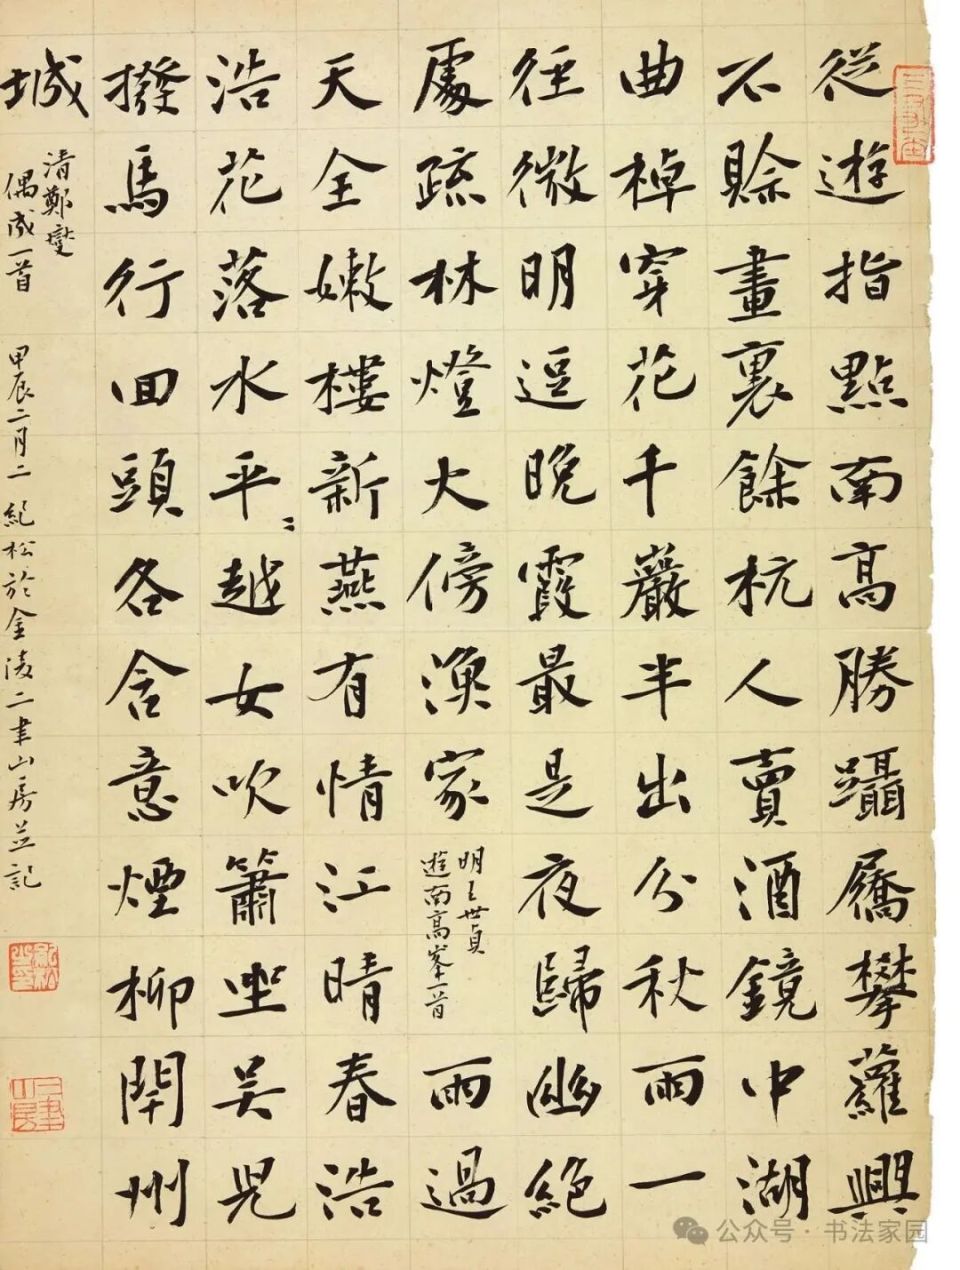 從遊指點南高勝躡屩攀蘿興
不賒畫裏餘杭人賣酒鏡中湖
曲棹穿花千巖半出分秋雨一
徑微明逗晚霞最是夜歸幽絕
處疏林燈火傍漁家
明王世貞
遊南高峯一首
雨過
天全嫩樓新燕有情江晴春浩
浩花落水平〻越女吹簫坐吳兒
撥馬行回頭各含意煙柳閉州
城
清鄭燮
偶成一首
甲辰二月二紀松於金陵二聿山房並記
二聿山房
公众号·书法家园